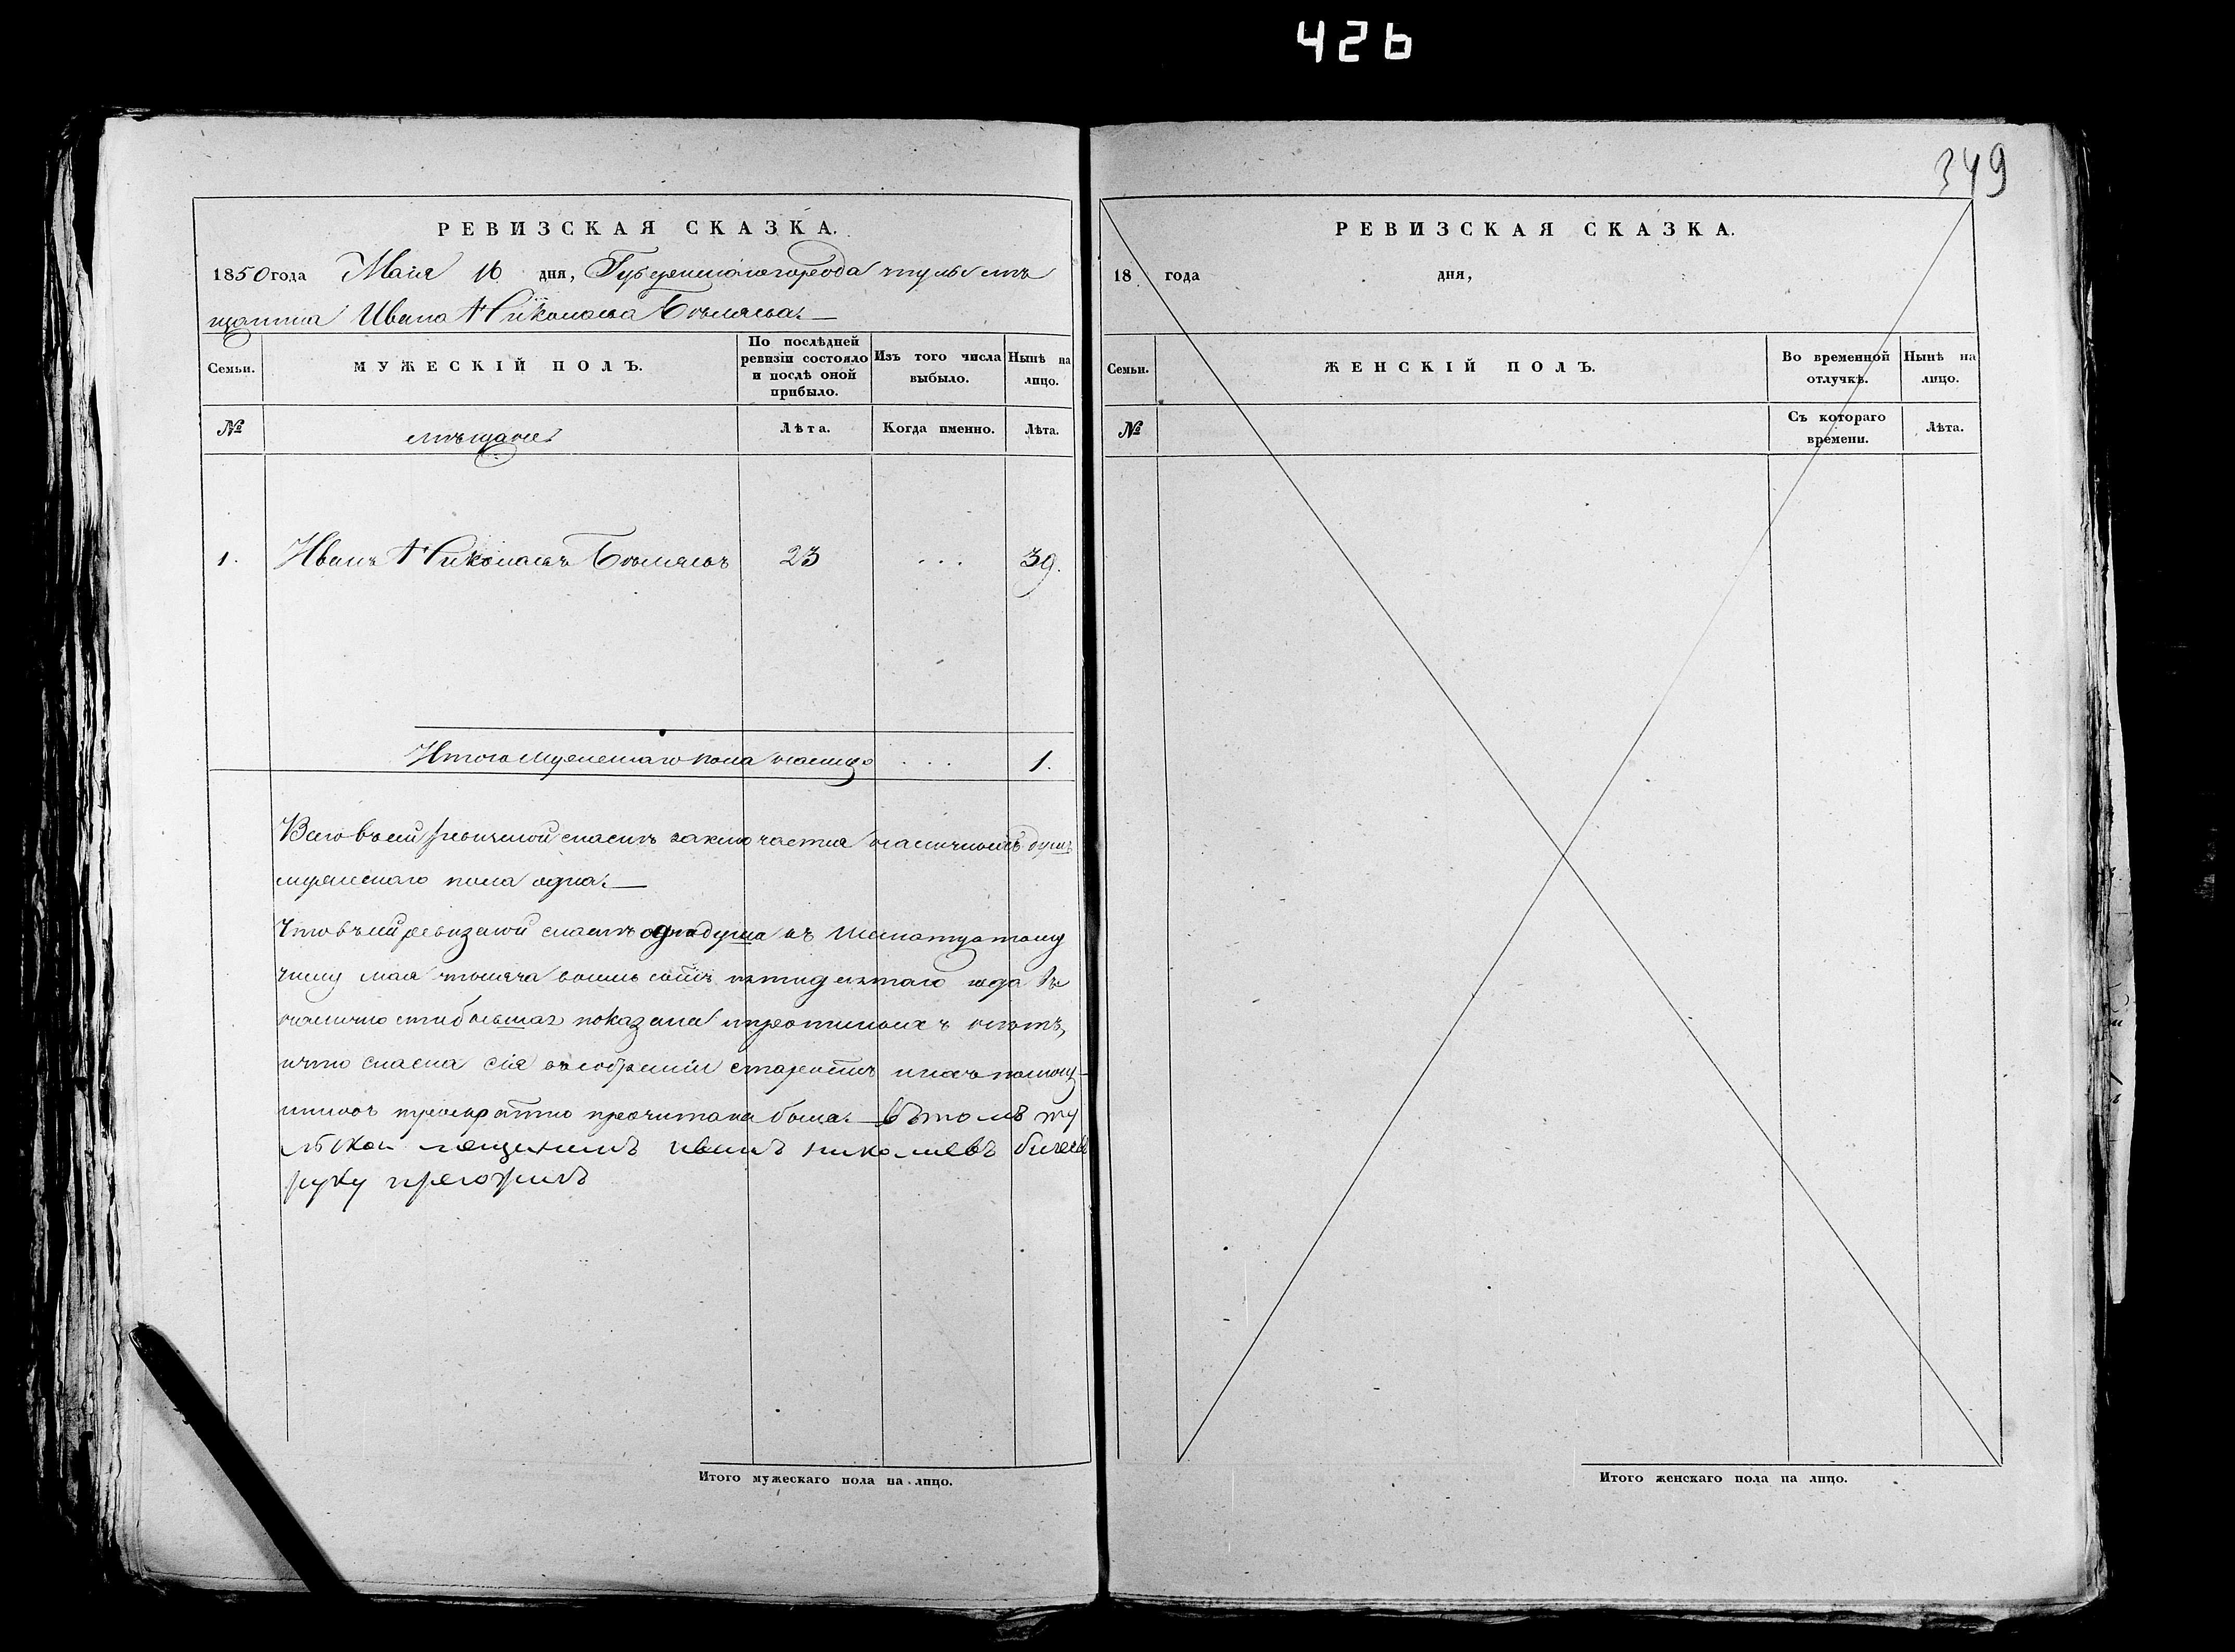 426
349
РЕВИЗСКАЯ СКАЗКА.
1850 года Маія 16 дня, Губернскаго города Тулы мѣ
щанина Ивана Николаева Бѣляева.
Семьи.
МУЖЕСКІЙ ПОЛЪ.
По послѣдней ревизіи состояло и послѣ оной прибыло.
Изъ того числа выбыло.
Нынѣ на лицо.
№
мѣщане
Лѣта.
Когда именно.
Лѣта.
1. Иванъ Николаевъ Бѣляевъ 23 . . . 39.
Итого мужескаго пола налицо . . . 1.
Всего въ сей ревизской сказкѣ заключается наличныхъ душъ
мужескаго пола одна.
Что въ сей ревизской сказкѣ одна душа къ шестнадцатому
числу мая тысяча восемь сотъ пятидесятаго года въ
наличности бывшая показана и противъ ихъ лѣтъ,
и что сказка сія въ собраніи старостъ и ихъ помощ-
никовъ троекратно прочитана была. вътомъ ту
лскои мещенинъ иванъ николаевъ билевъ
руку приложилъ
Итого мужескаго пола на лицо.
РЕВИЗСКАЯ СКАЗКА.
18 года дня,
Семьи.
ЖЕНСКІЙ ПОЛЪ.
Во временной отлучкѣ.
Нынѣ на лицо.
№
Съ котораго времени.
Лѣта.
Итого женскаго пола на лицо.